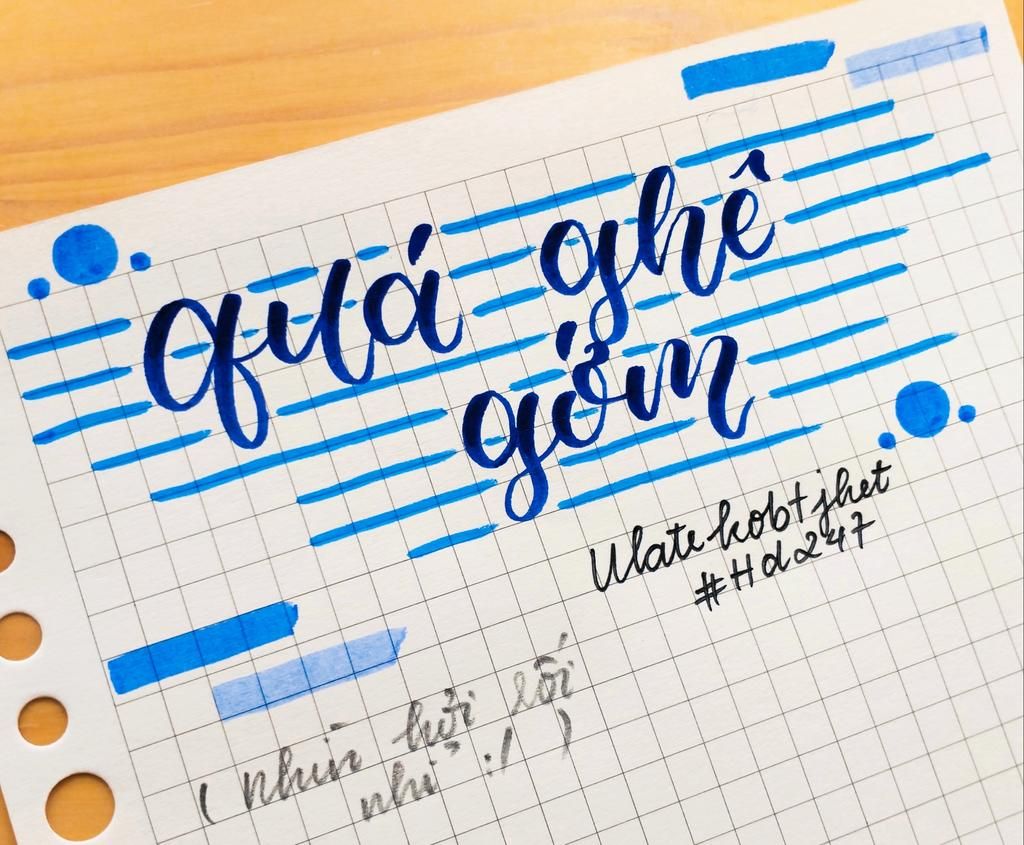 quá ghê
gớm
Ulatekobtjhet
#Hd247
( nhìn hơi lối
nhỉ :/ )